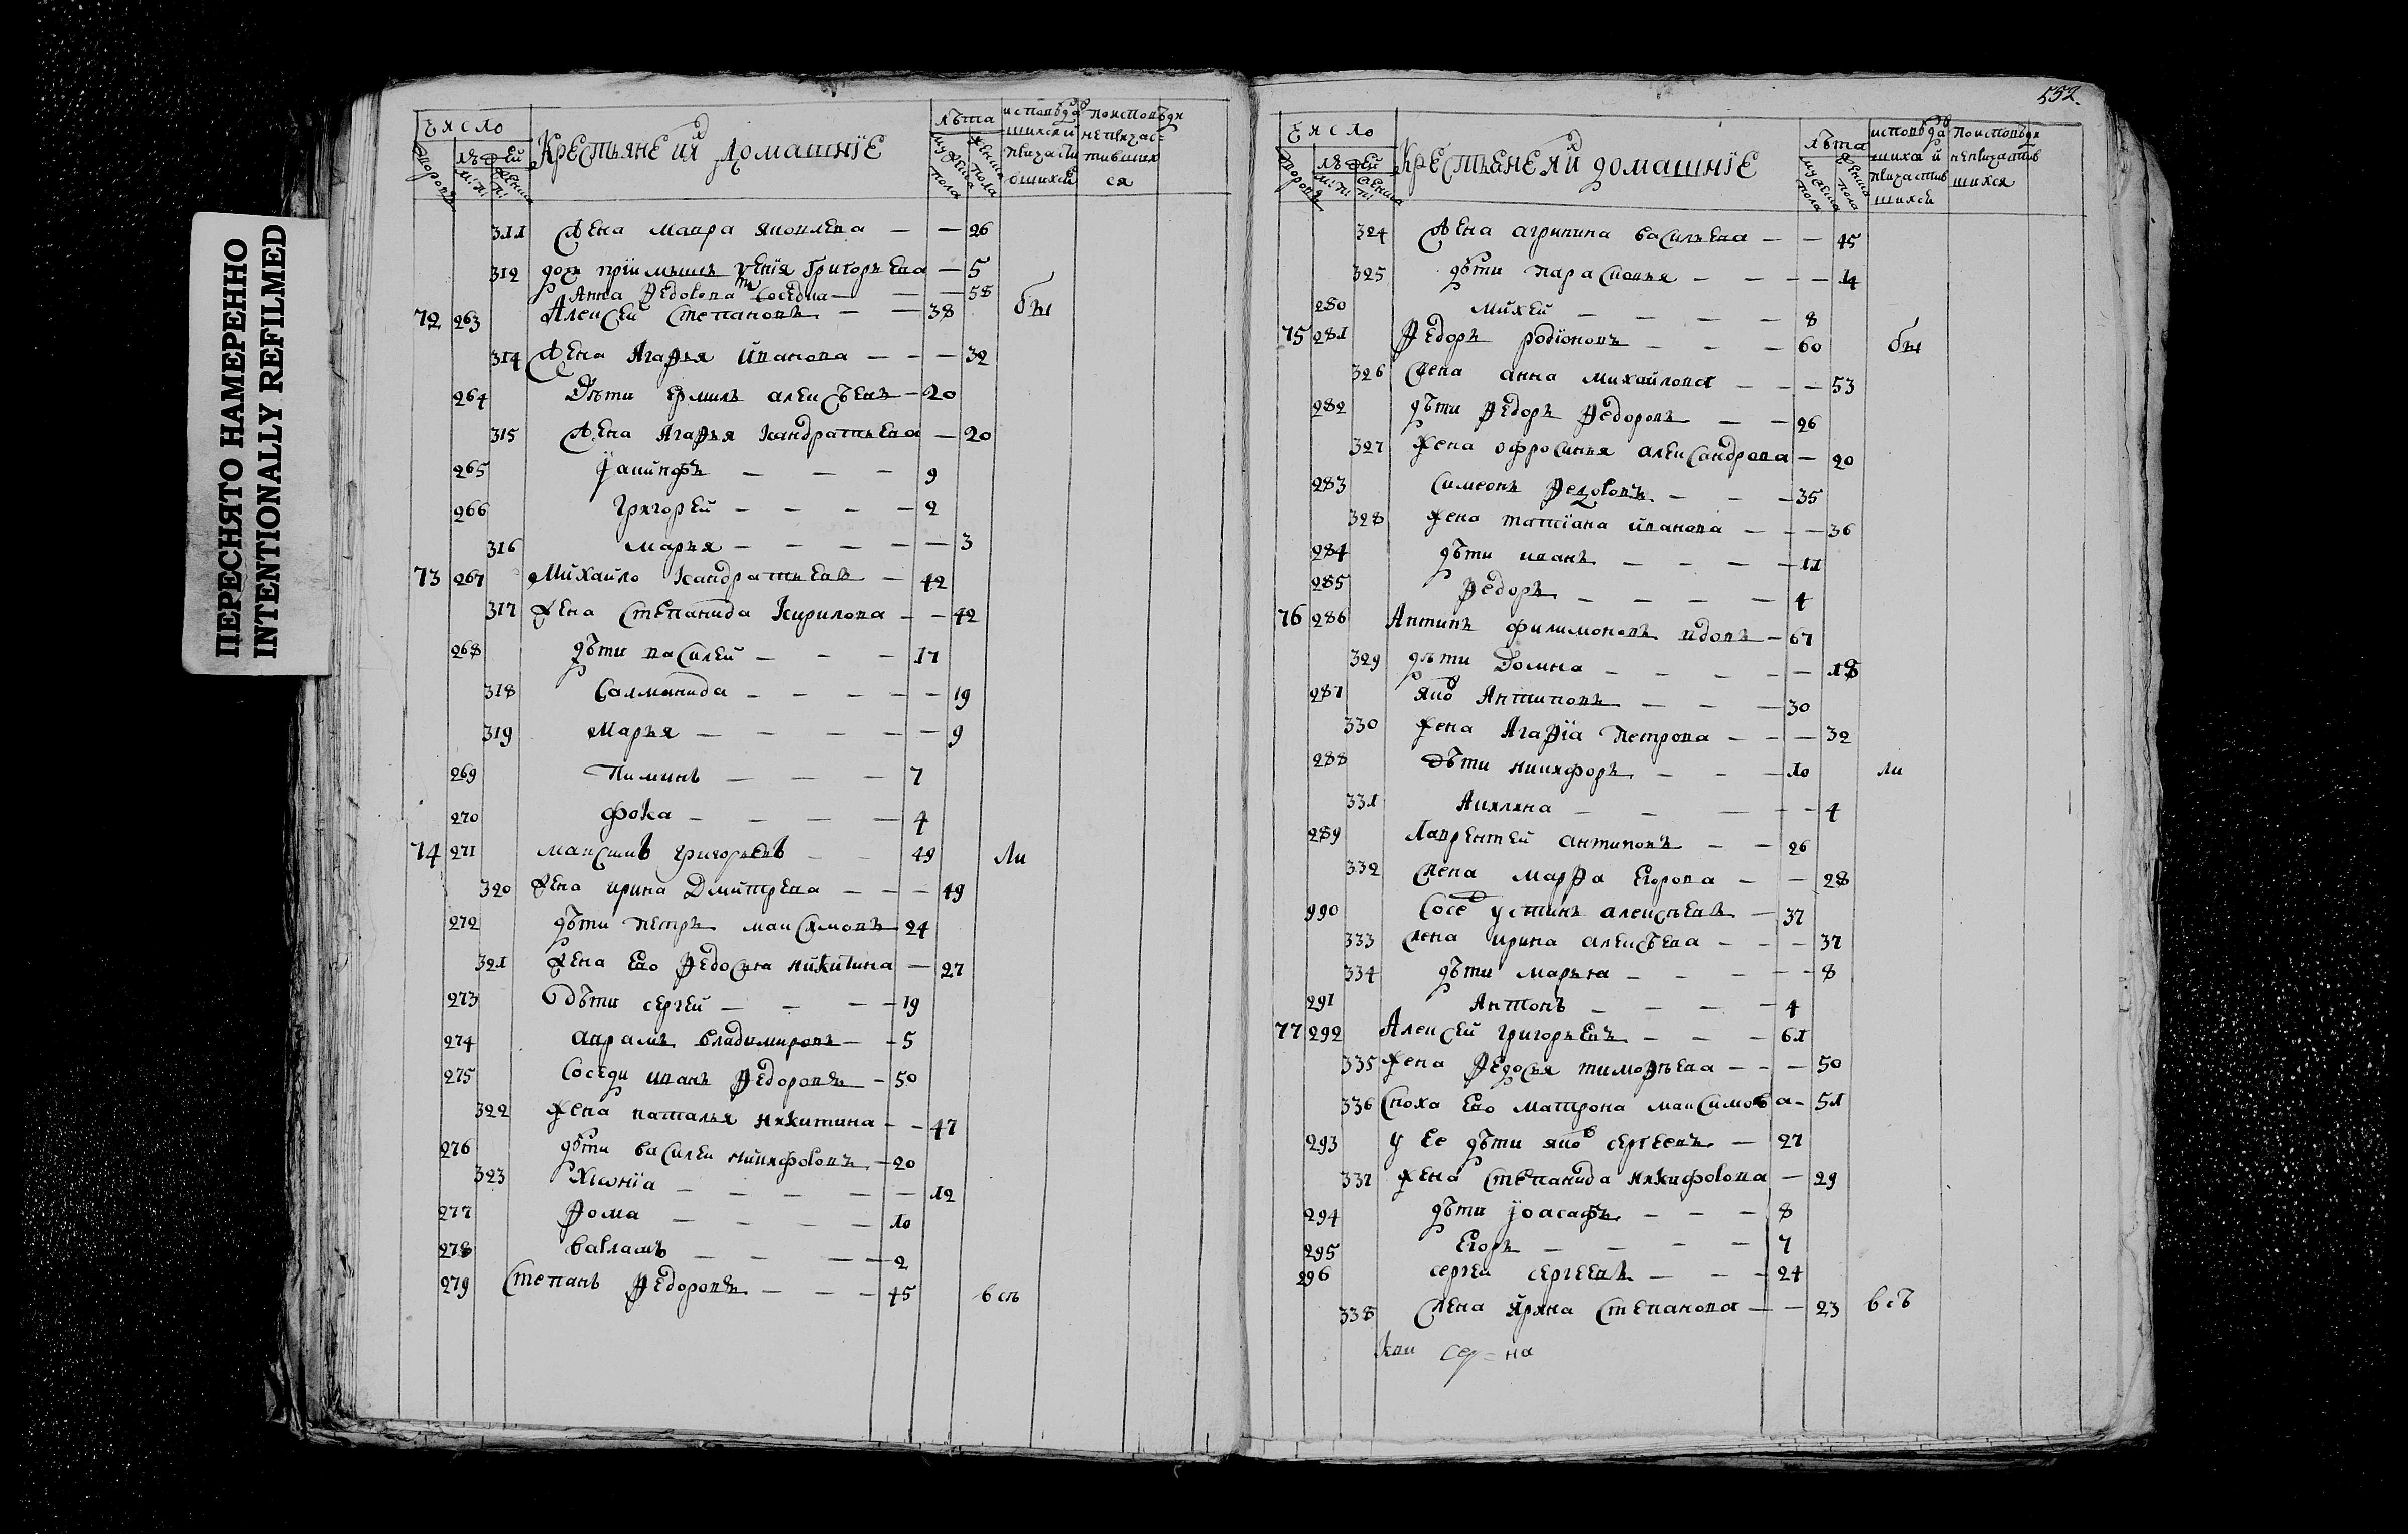 ПЕРЕСНЯТО НАМЕРЕННО
INTENTIONALLY REFILMED
число
дворовъ
людей
м: п:
женска п:
Крестьяне и их домашнїе
лѣта
мужеска пола
женска пола
исповѣда
шихся и
причасти
вшихся
по исповѣди
непричас=
тивших
ся
311 жена мавра яковлева — — 26
312 дочь прїимышъ Григорьева — 5
Анна Ѳедотова соседка — — — 58
72 263 Алексей Степановъ — — 38 бы
314 жена Агаѳья Иванова — — — 32
264 Дѣти ермилъ алексѣевъ — 20
315 жена Агаѳья Кандратьева — 20
265 Їакинфъ — — — 9
266 Григорей — — — — 2
316 марья — — — — — 3
73 267 Михайло Кандратьевъ — 42
317 жена Степанида Кирилова — — 42
268 дѣти василей — — — 17
318 Саломанида — — — — — 19
319 Марья — — — — — 9
269 Пиминъ — — — 7
270 фока — — — — 4
74 271 Максимъ григорьевъ — — 49 ли
320 жена ирина Дмитрева — — — 49
272 дѣти петръ максимовъ 24
321 жена ево Ѳедосья никитина — 27
273 дѣти сергей — — — — 19
274 аврамъ владимировъ — — 5
275 Соседи иванъ Ѳедоровъ — 50
322 жена наталья никитина — — 47
276 дѣти василеи никифоровъ — 20
323 Хїѡнїа — — — — — 12
277 Ѳома — — — — 10
278 варламъ — — — — 2
279 Степанъ Ѳедоровъ — — — 45 всѣ
552.
число
дворовъ
людей
м: п:
женска п:
Крестьяне и их домашнїе
лѣта
мужеска пола
женска пола
исповѣда
шихся и
причастив
шихся
по исповѣди
непричастив
шихся
324 жена агрипина васильева — — 45
325 дѣти парасковья — — — — 14
280 михей — — — — 8
75 281 Ѳедоръ родїоновъ — — — 60 бы
326 жена анна михайлова — — — 53
282 дѣти Ѳедоръ Ѳедоровъ — — 26
327 жена офросинья александрова — 20
283 Симеонъ Ѳедоровъ — — — 35
328 жена татїана иванова — — — 36
284 дѣти иванъ — — — — 11
285 Ѳедоръ — — — — 4
76 286 Антипъ филимоновъ вдовъ — 67
329 дѣти Домна — — — — — 18
287 яко Антиповъ — — — 30
330 жена Агаѳїа Петрова — — — 32
288 дѣти никифоръ — — — 10 ли
331 Акилина — — — — — 4
289 Лаврентей антиповъ — — 26
332 жена марѳа Егорова — — 28
990 Сосед устинъ алексѣевъ — 37
333 жена ирина алексѣева — — — 37
334 дѣти марья — — — — 8
291 Антонъ — — — — 4
77 292 Алексей григорьевъ — — — 61
335 жена Ѳедосья тимоѳѣева — — — 50
336 Сноха ево матрона максимова — 51
293 у ее дѣти яков сергеевъ — 27
337 жена Степанида никифорова — 29
294 дѣти їоасафъ — — — 8
295 Егоръ — — — — 7
296 сергеи сергеевъ — — — 24
338 жена ирина Степанова — — 23 всѣ